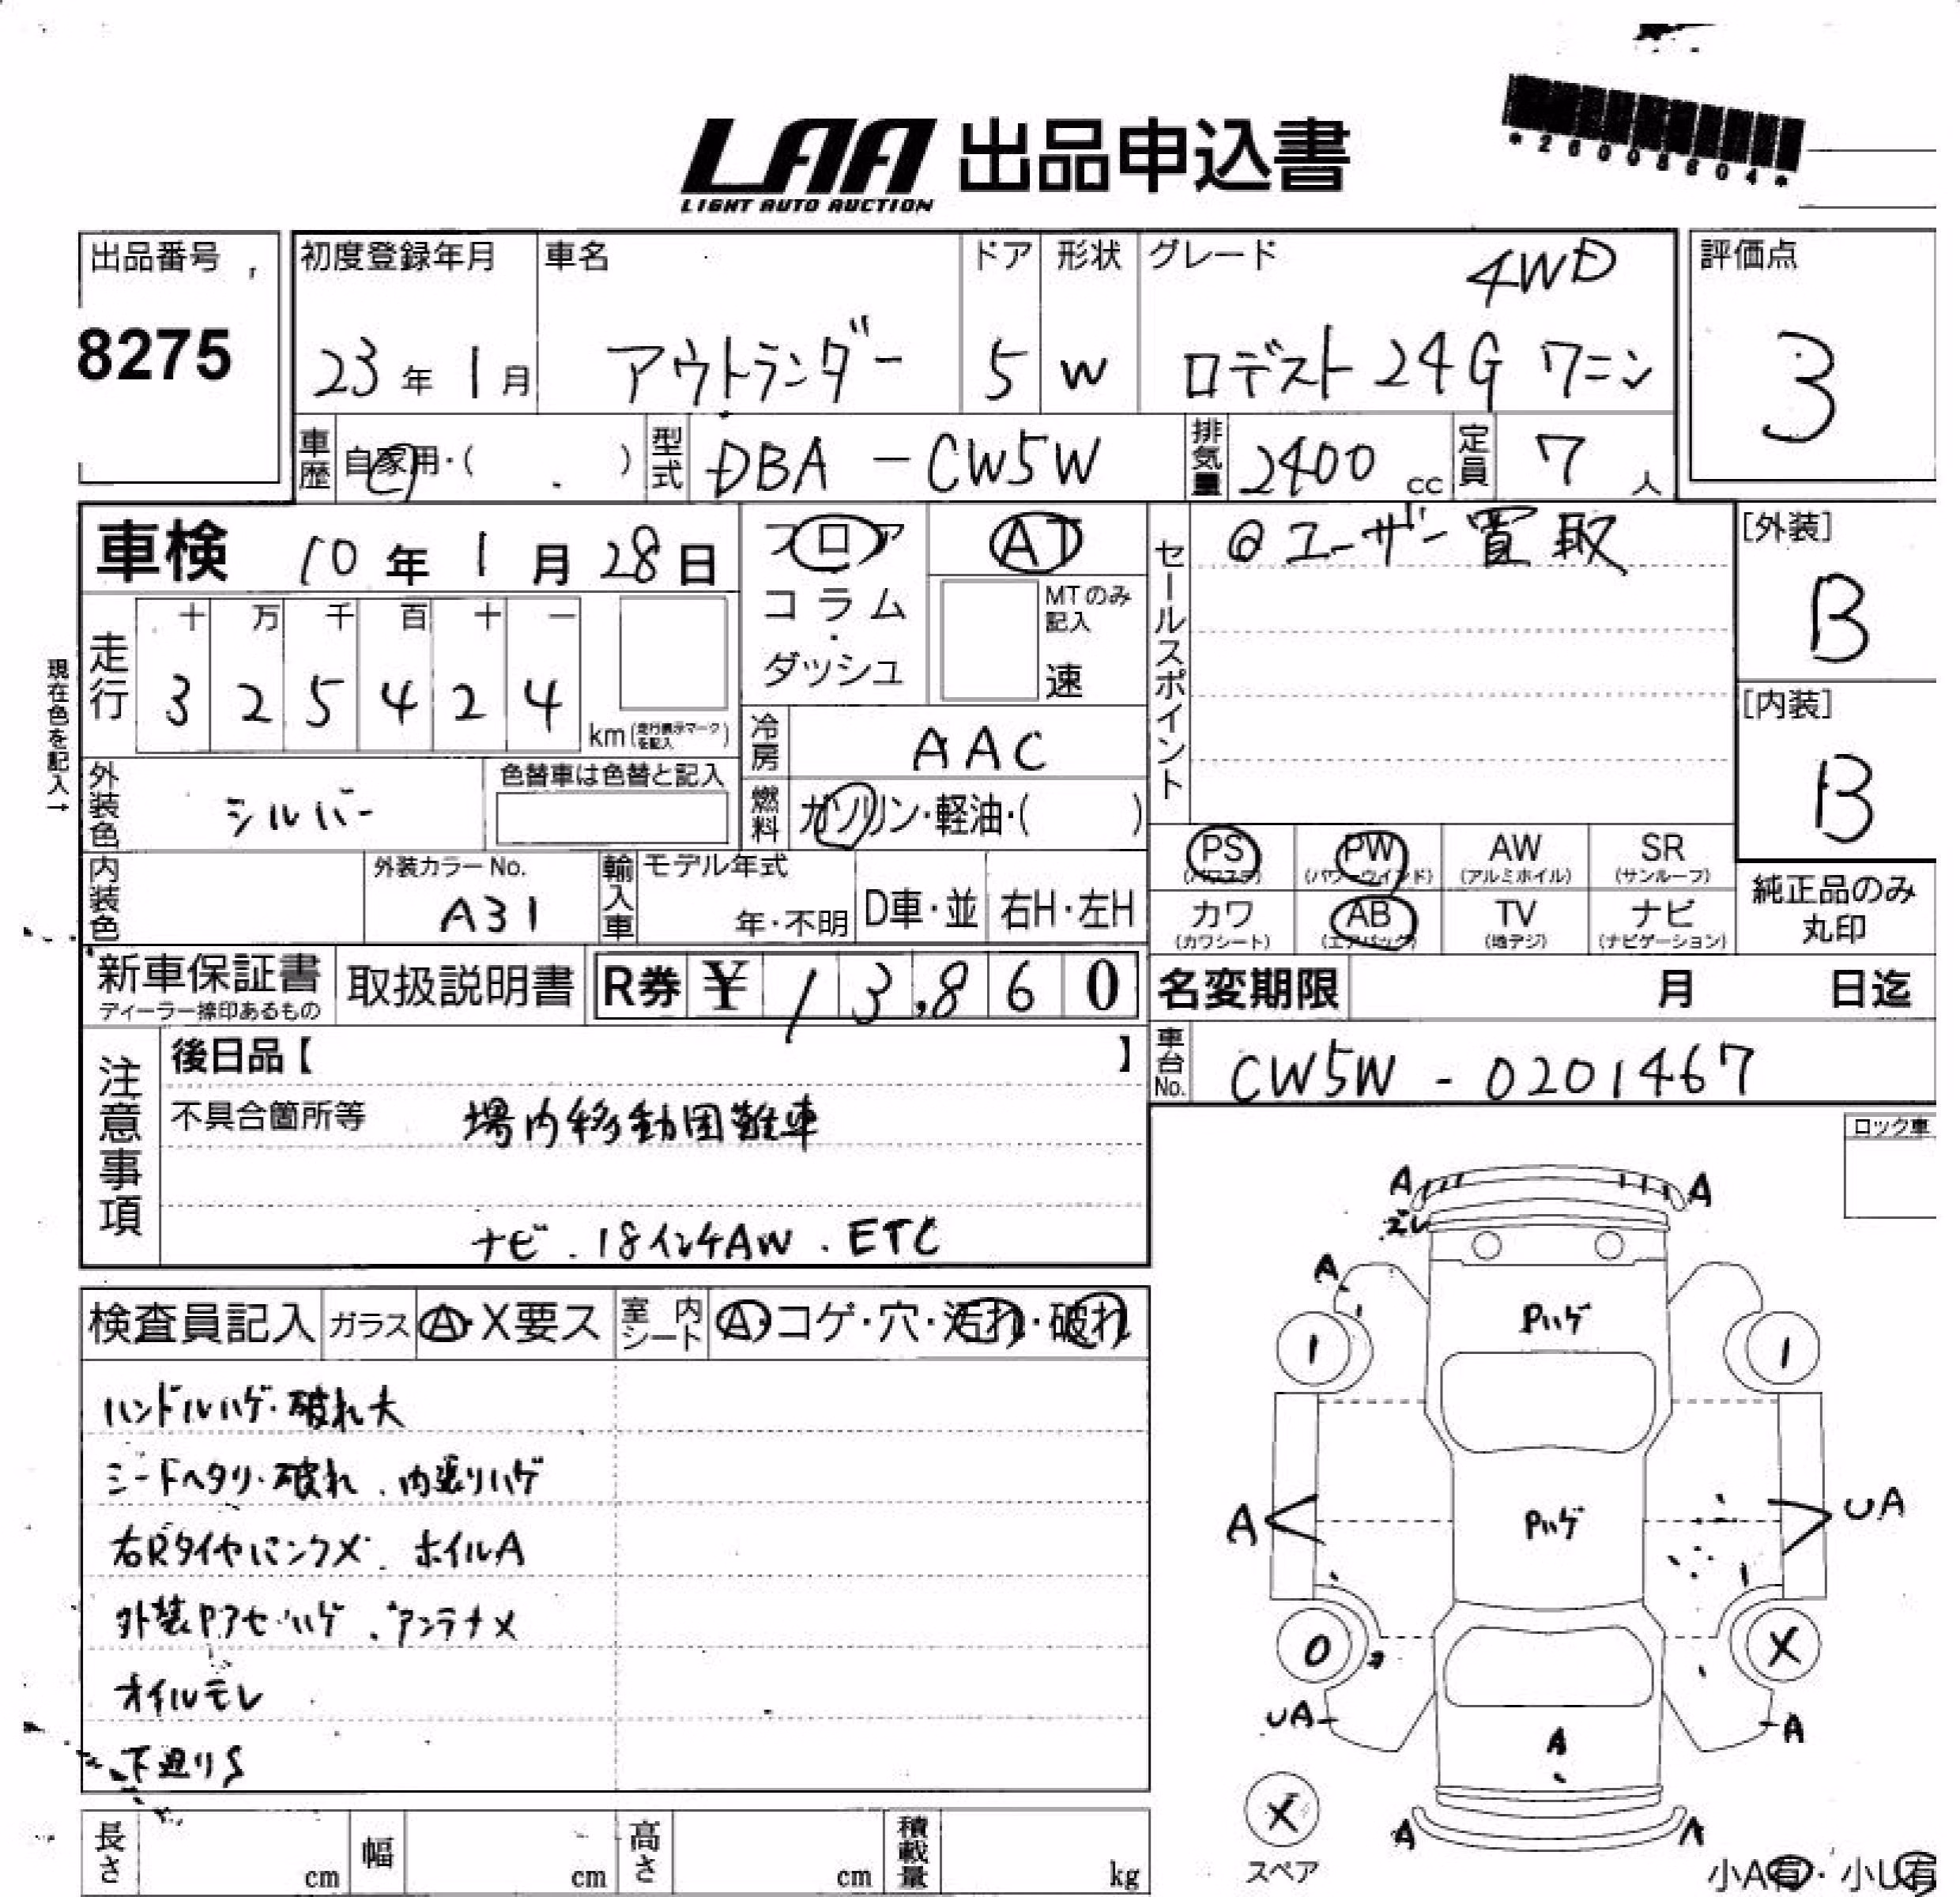 *26008604*
LAA 出品申込書
LIGHT AUTO AUCTION
出品番号
8275
初度登録年月
23年1月
車名
アウトランダー
ドア
5
形状
W
グレード
4WD
ロデスト 24G 7ニン
評価点
3
車歴
自家用・( )
型式
DBA-CW5W
排気量
2400cc
定員
7人
車検 10年1月28日
フロア
コラム
・
ダッシュ
AT
MTのみ記入
速
セールスポイント
@ユーザー買取
[外装]
B
[内装]
B
現在色を記入→
走行
十 万 千 百 十 一
3 2 5 4 2 4
km(走行表示マークを記入)
冷房
AAC
外装色
シルバー
色替車は色替と記入
燃料
ガソリン・軽油・( )
PS (パワステ)
PW (パワーウインド)
AW (アルミホイル)
SR (サンルーフ)
カワ (カワシート)
AB (エアバッグ)
TV (地デジ)
ナビ (ナビゲーション)
純正品のみ
丸印
内装色
外装カラーNo.
A31
輸入車
モデル年式
年・不明
D車・並
右H・左H
新車保証書
ディーラー捺印あるもの
取扱説明書
R券 ¥ 13,860
名変期限 月 日迄
車台No.
CW5W-0201467
注意事項
後日品【 】
不具合箇所等 場内移動困難車
ナビ . 18インチAW . ETC
ロック車
検査員記入
ガラス
A・X要ス
室内シート
A・コゲ・穴・汚れ・破れ
ハンドルハゲ・破れ大
シートヘタリ・破れ . 内張りハゲ
右RタイヤパンクX . ホイルA
外装Pアセ・ハゲ . アンテナX
オイルモレ
下廻りS
A
A
ズレ
A
Pハゲ
1
1
A
Pハゲ
UA
0
X
UA
A
A
X
スペア
A
A
小A有・小U有
長さ cm
幅 cm
高さ cm
積載量 kg